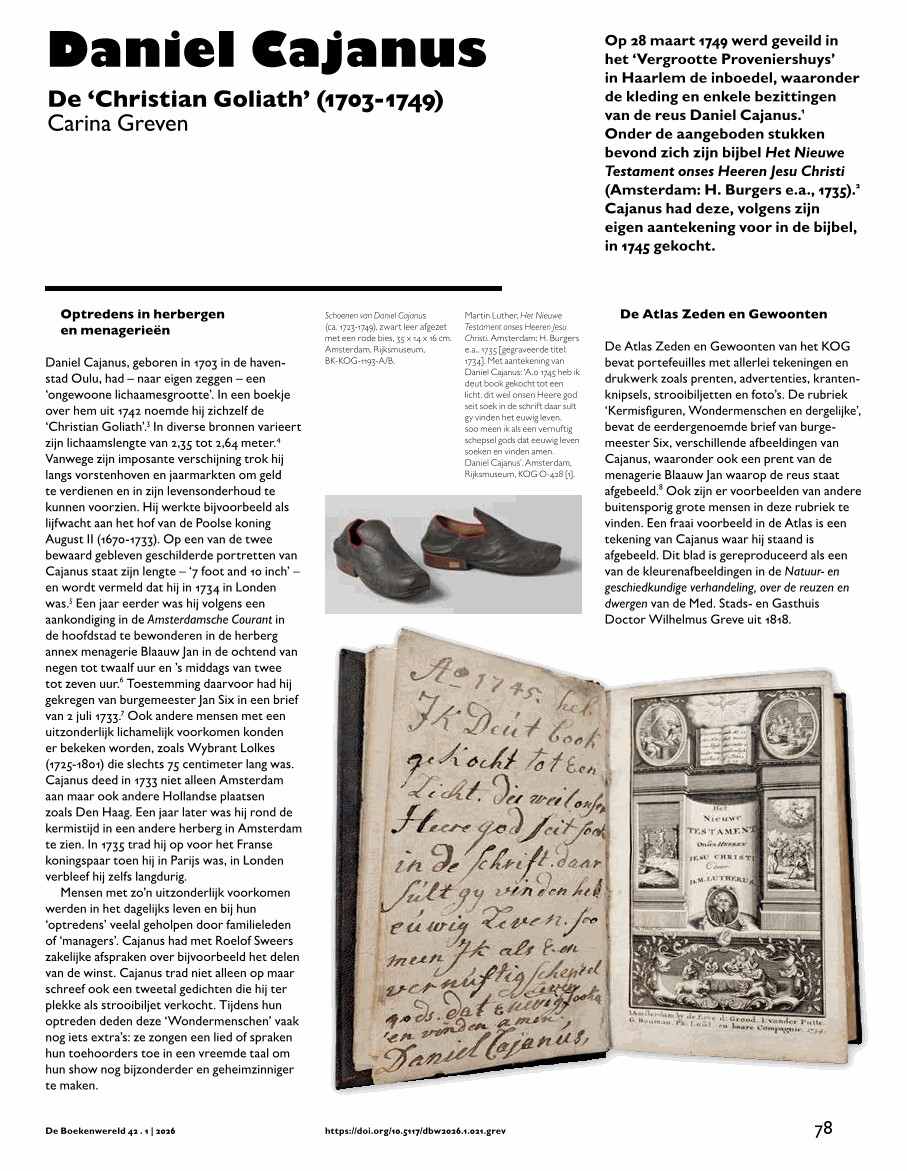 Daniel Cajanus
De ‘Christian Goliath’ (1703-1749)
Carina Greven
Op 28 maart 1749 werd geveild in
het ‘Vergrootte Proveniershuys’
in Haarlem de inboedel, waaronder
de kleding en enkele bezittingen
van de reus Daniel Cajanus.¹
Onder de aangeboden stukken
bevond zich zijn bijbel Het Nieuwe
Testament onses Heeren Jesu Christi
(Amsterdam: H. Burgers e.a., 1735).²
Cajanus had deze, volgens zijn
eigen aantekening voor in de bijbel,
in 1745 gekocht.
Optredens in herbergen
en menagerieën
Daniel Cajanus, geboren in 1703 in de haven-
stad Oulu, had – naar eigen zeggen – een
‘ongewoone lichaamesgrootte’. In een boekje
over hem uit 1742 noemde hij zichzelf de
‘Christian Goliath’.³ In diverse bronnen varieert
zijn lichaamslengte van 2,35 tot 2,64 meter.⁴
Vanwege zijn imposante verschijning trok hij
langs vorstenhoven en jaarmarkten om geld
te verdienen en in zijn levensonderhoud te
kunnen voorzien. Hij werkte bijvoorbeeld als
lijfwacht aan het hof van de Poolse koning
August II (1670-1733). Op een van de twee
bewaard gebleven geschilderde portretten van
Cajanus staat zijn lengte – ‘7 foot and 10 inch’ –
en wordt vermeld dat hij in 1734 in Londen
was.⁵ Een jaar eerder was hij volgens een
aankondiging in de Amsterdamsche Courant in
de hoofdstad te bewonderen in de herberg
annex menagerie Blaauw Jan in de ochtend van
negen tot twaalf uur en ’s middags van twee
tot zeven uur.⁶ Toestemming daarvoor had hij
gekregen van burgemeester Jan Six in een brief
van 2 juli 1733.⁷ Ook andere mensen met een
uitzonderlijk lichamelijk voorkomen konden
er bekeken worden, zoals Wybrant Lolkes
(1725-1801) die slechts 75 centimeter lang was.
Cajanus deed in 1733 niet alleen Amsterdam
aan maar ook andere Hollandse plaatsen
zoals Den Haag. Een jaar later was hij rond de
kermistijd in een andere herberg in Amsterdam
te zien. In 1735 trad hij op voor het Franse
koningspaar toen hij in Parijs was, in Londen
verbleef hij zelfs langdurig.
Mensen met zo’n uitzonderlijk voorkomen
werden in het dagelijks leven en bij hun
‘optredens’ veelal geholpen door familieleden
of ‘managers’. Cajanus had met Roelof Sweers
zakelijke afspraken over bijvoorbeeld het delen
van de winst. Cajanus trad niet alleen op maar
schreef ook een tweetal gedichten die hij ter
plekke als strooibiljet verkocht. Tijdens hun
optreden deden deze ‘Wondermenschen’ vaak
nog iets extra’s: ze zongen een lied of spraken
hun toehoorders toe in een vreemde taal om
hun show nog bijzonderder en geheimzinniger
te maken.
Schoenen van Daniel Cajanus
(ca. 1723-1749), zwart leer afgezet
met een rode bies, 35 x 14 x 16 cm.
Amsterdam, Rijksmuseum,
BK-KOG-1193-A/B.
Martin Luther, Het Nieuwe
Testament onses Heeren Jesu
Christi. Amsterdam: H. Burgers
e.a., 1735 [gegraveerde titel:
1734]. Met aantekening van
Daniel Cajanus: ‘A.o 1745 heb ik
deut book gekocht tot een
licht. dit weil onsen Heere god
seit soek in de schrift daar sult
gy vinden het euwig leven.
soo meen ik als een vernuftig
schepsel gods dat eeuwig leven
soeken en vinden amen.
Daniel Cajanus’. Amsterdam,
Rijksmuseum, KOG O-428 [1].
De Atlas Zeden en Gewoonten
De Atlas Zeden en Gewoonten van het KOG
bevat portefeuilles met allerlei tekeningen en
drukwerk zoals prenten, advertenties, kranten-
knipsels, strooibiljetten en foto’s. De rubriek
‘Kermisfiguren, Wondermenschen en dergelijke’,
bevat de eerdergenoemde brief van burge-
meester Six, verschillende afbeeldingen van
Cajanus, waaronder ook een prent van de
menagerie Blaauw Jan waarop de reus staat
afgebeeld.⁸ Ook zijn er voorbeelden van andere
buitensporig grote mensen in deze rubriek te
vinden. Een fraai voorbeeld in de Atlas is een
tekening van Cajanus waar hij staand is
afgebeeld. Dit blad is gereproduceerd als een
van de kleurenafbeeldingen in de Natuur- en
geschiedkundige verhandeling, over de reuzen en
dwergen van de Med. Stads- en Gasthuis
Doctor Wilhelmus Greve uit 1818.
Ao 1745. heb
Ik Deut book
gekocht tot Een
Licht. dit weil onsen
Heere god seit soek
in de schrift. daar
sult gy vinden het
euwig Leven. soo
meen Ik als Een
vernuftig schepsel
gods. dat Euwig Leven soeken
en vinden amen.
Daniel Cajanus,
Het
Nieuwe
TESTAMENT
Onses HEEREN
IESU CHRISTI
Door
D. M. LUTHERUS.
t'Amsterdam by de Erve d. Grood. I. vander Putte.
G. Bouman. Ph. Losel. en haare Compagnie. 1734.
De Boekenwereld 42 . 1 | 2026
https://doi.org/10.5117/dbw2026.1.021.grev
78